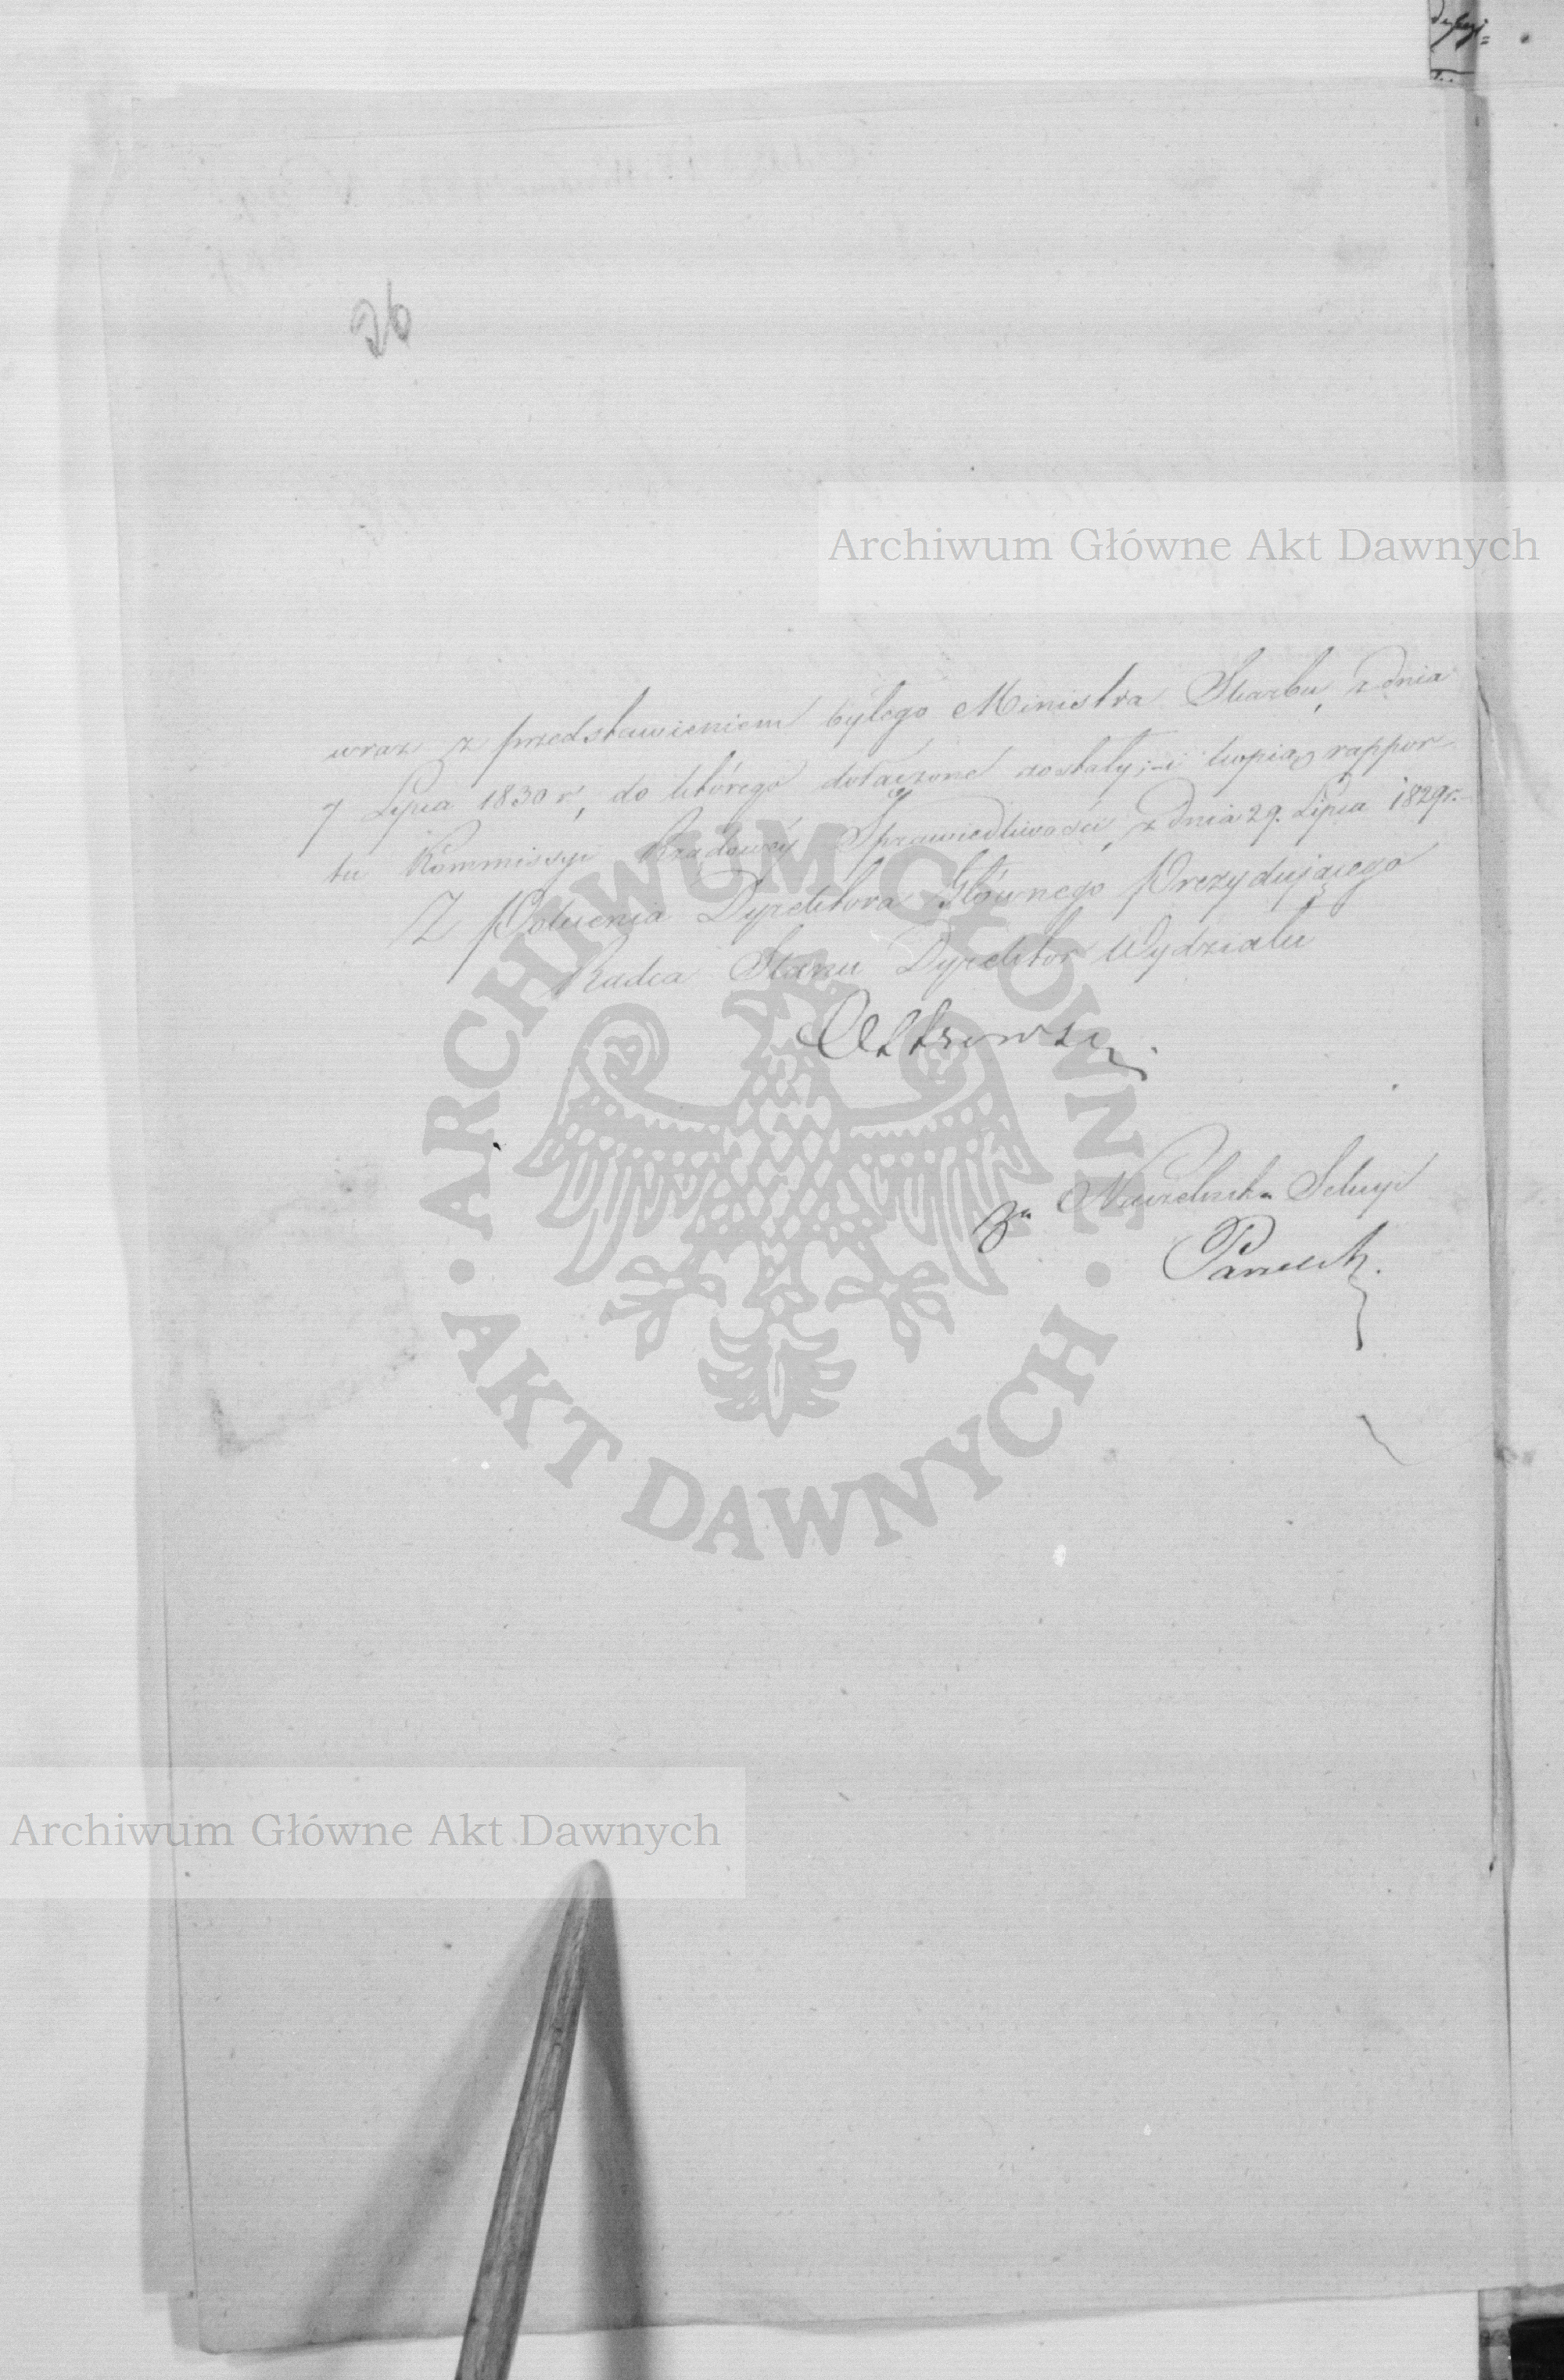 26
Archiwum Główne Akt Dawnych
wraz z przedstawieniem byłego Ministra Skarbu, z dnia
7 Lipca 1830 r, do którego dołączone zostały; i kopią rappor
tu Kommissyi Rządowey Sprawiedliwości, z dnia 29. Lipca 1829 r.
Z Polecenia Dyrektora Głównego Prezydującego
Radca Stanu Dyrektor Wydziału
za Naczelnika Sekcyi
ARCHIWUM GŁÓWNE
AKT DAWNYCH
Archiwum Główne Akt Dawnych